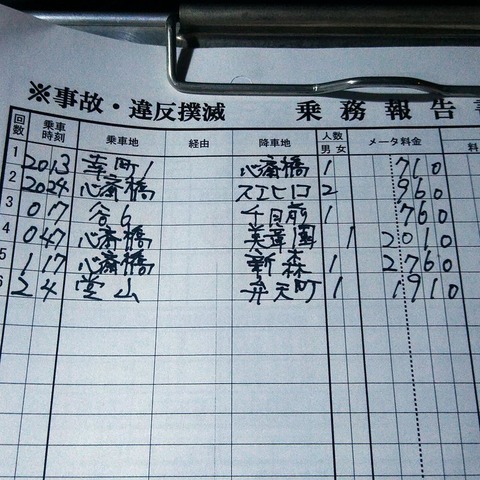 ※事故・違反撲滅 乗務報告書
回数 乗車時刻 乗車地 経由 降車地 人数 男 女 メータ料金 料
1 2013 幸町1 心斎橋 1 710
2 2024 心斎橋 スエヒロ 2 960
3 017 谷6 千日前 1 760
4 047 心斎橋 美章園 1 2010
5 117 心斎橋 新森 1 2760
6 24 堂山 弁天町 1 1910